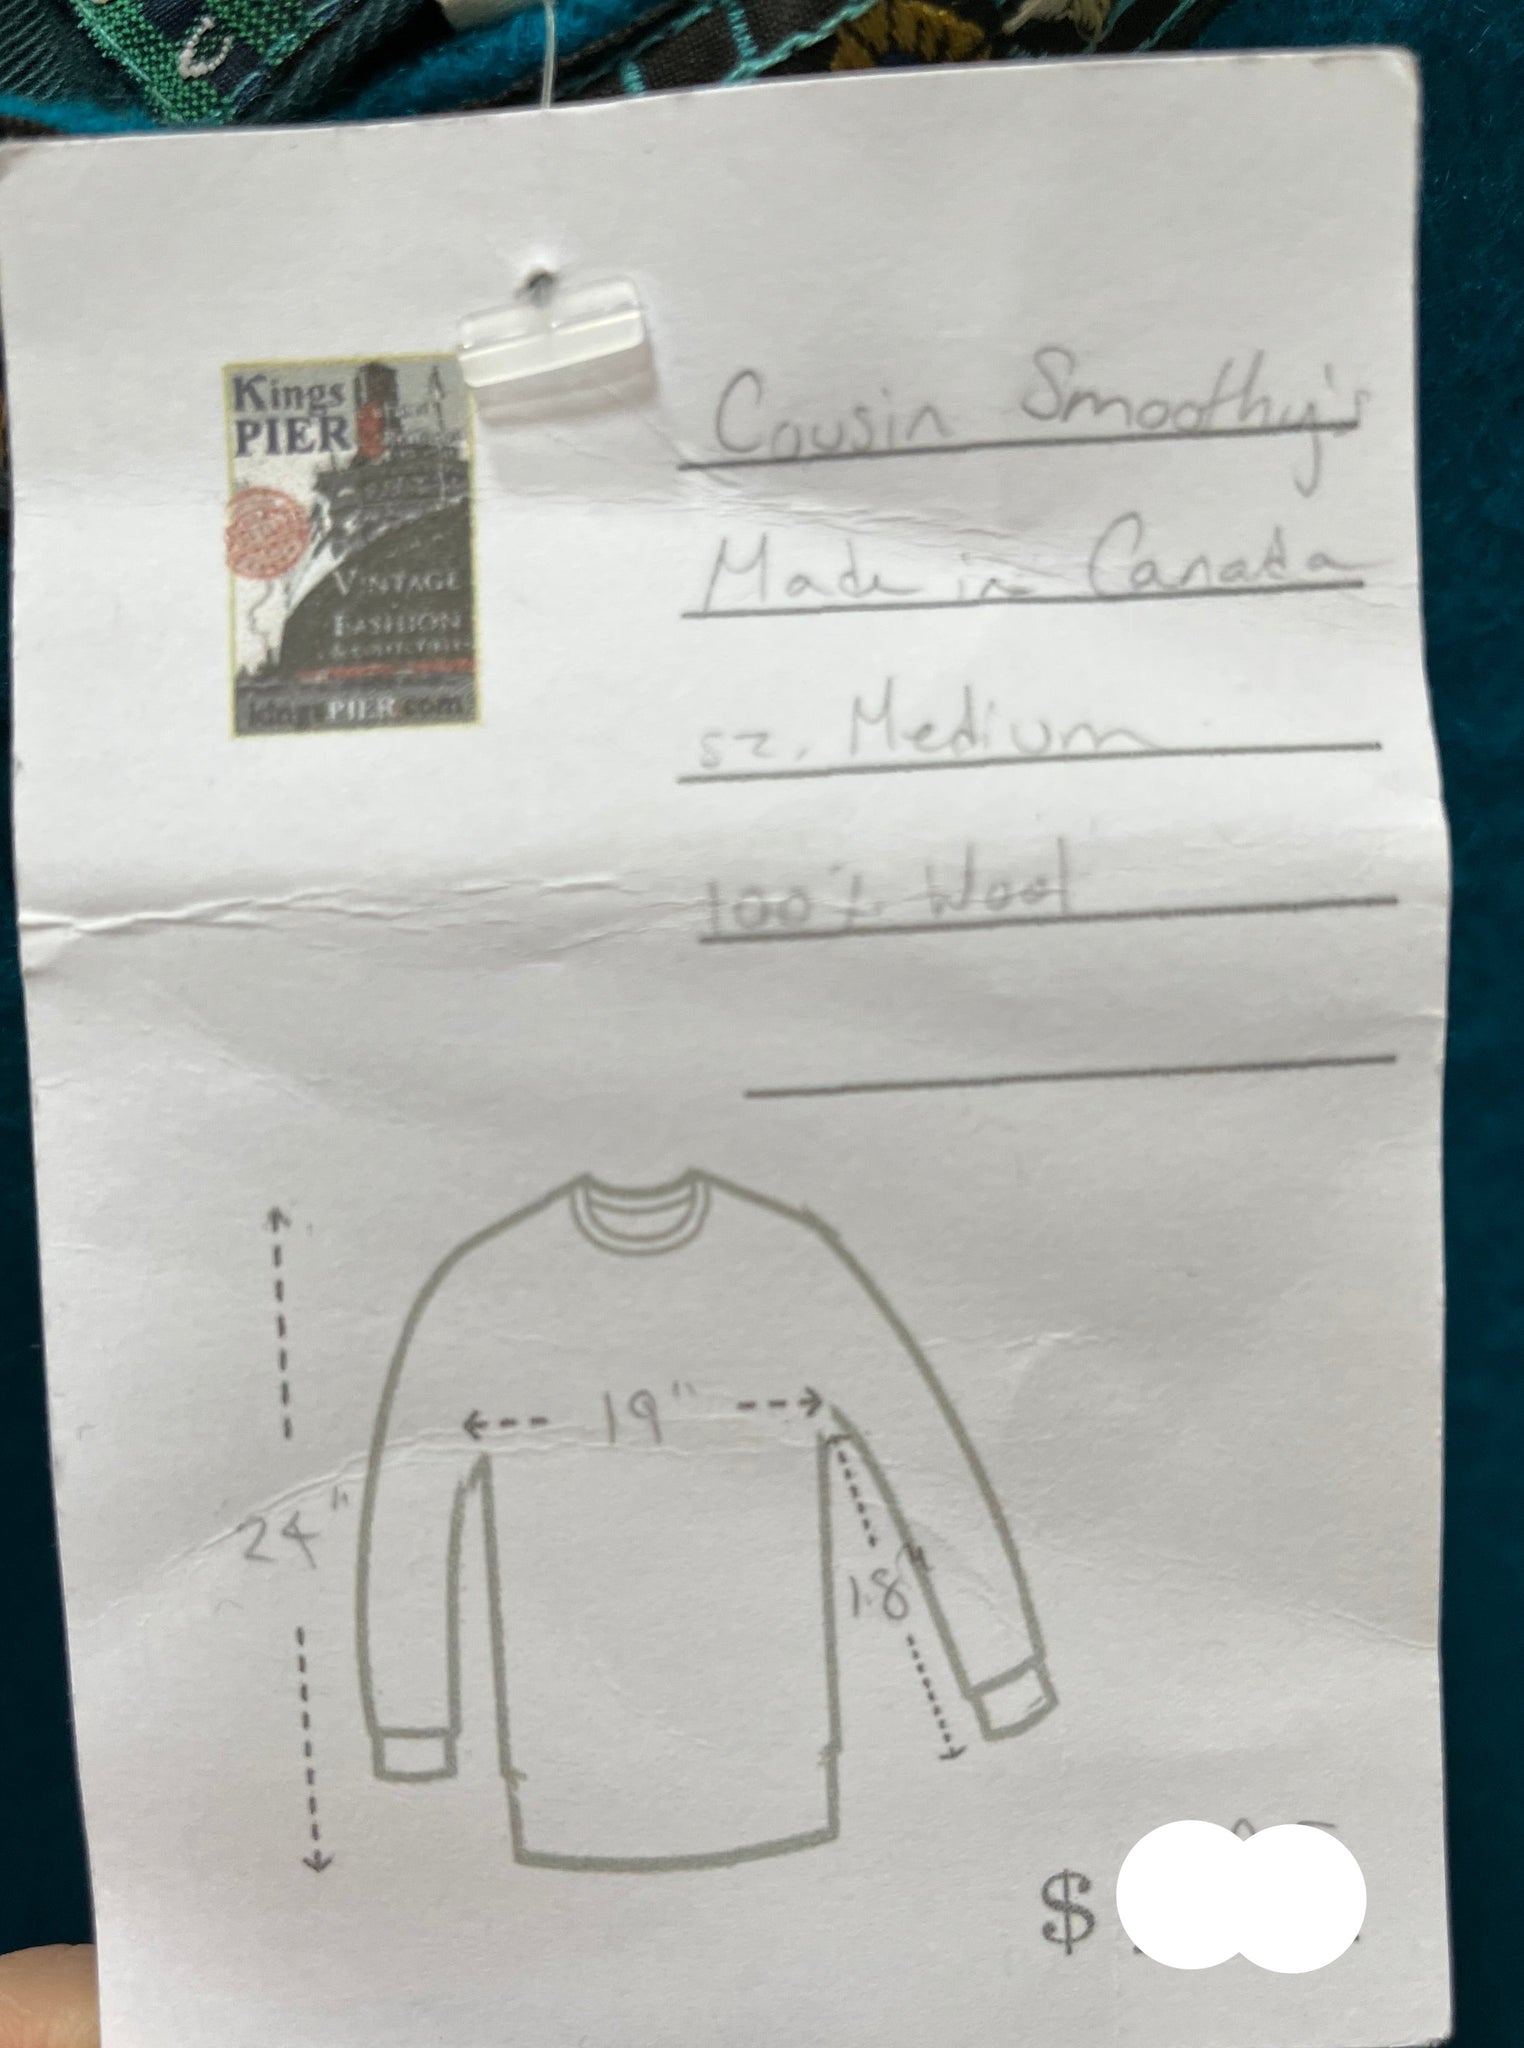 Kings
PIER
VINTAGE
FASHION
& COLLECTIBLES
kingsPIER.com
Cousin Smoothy's
Made in Canada
sz. Medium
100% Wool
19"
24"
18"
$